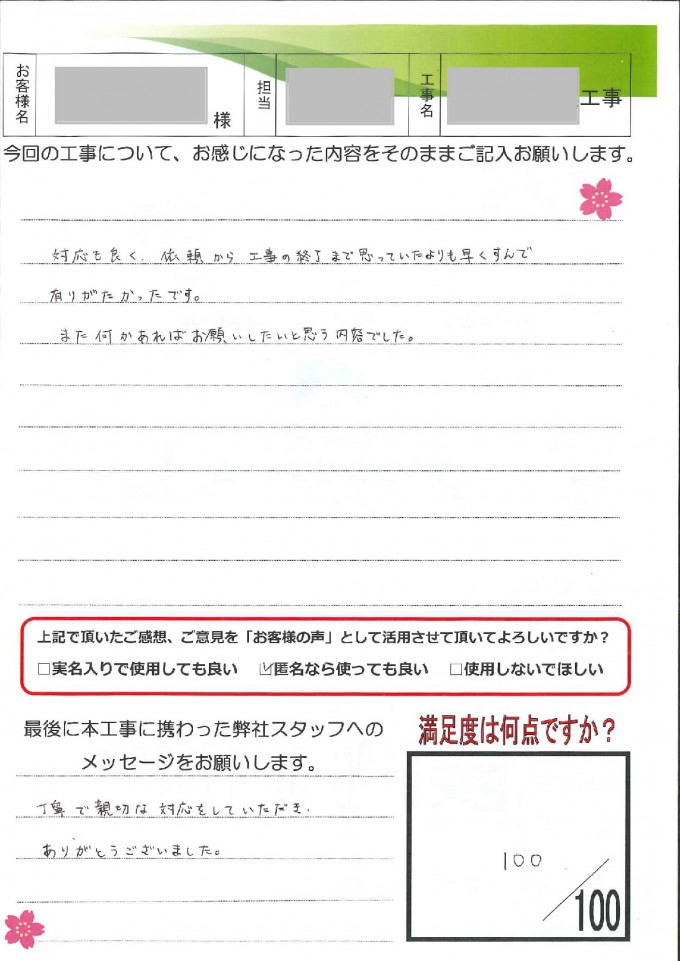 お客様名
様
担当
工事名
工事
今回の工事について、お感じになった内容をそのままご記入お願いします。
対応も良く、依頼から工事の終了まで思っていたよりも早くすんで
有りがたかったです。
また何かあればお願いしたいと思う内容でした。
上記で頂いたご感想、ご意見を「お客様の声」として活用させて頂いてよろしいですか？
□実名入りで使用しても良い ☑匿名なら使っても良い □使用しないでほしい
最後に本工事に携わった弊社スタッフへの
メッセージをお願いします。
丁寧で親切な対応をしていただき、
ありがとうございました。
満足度は何点ですか？
100
/100